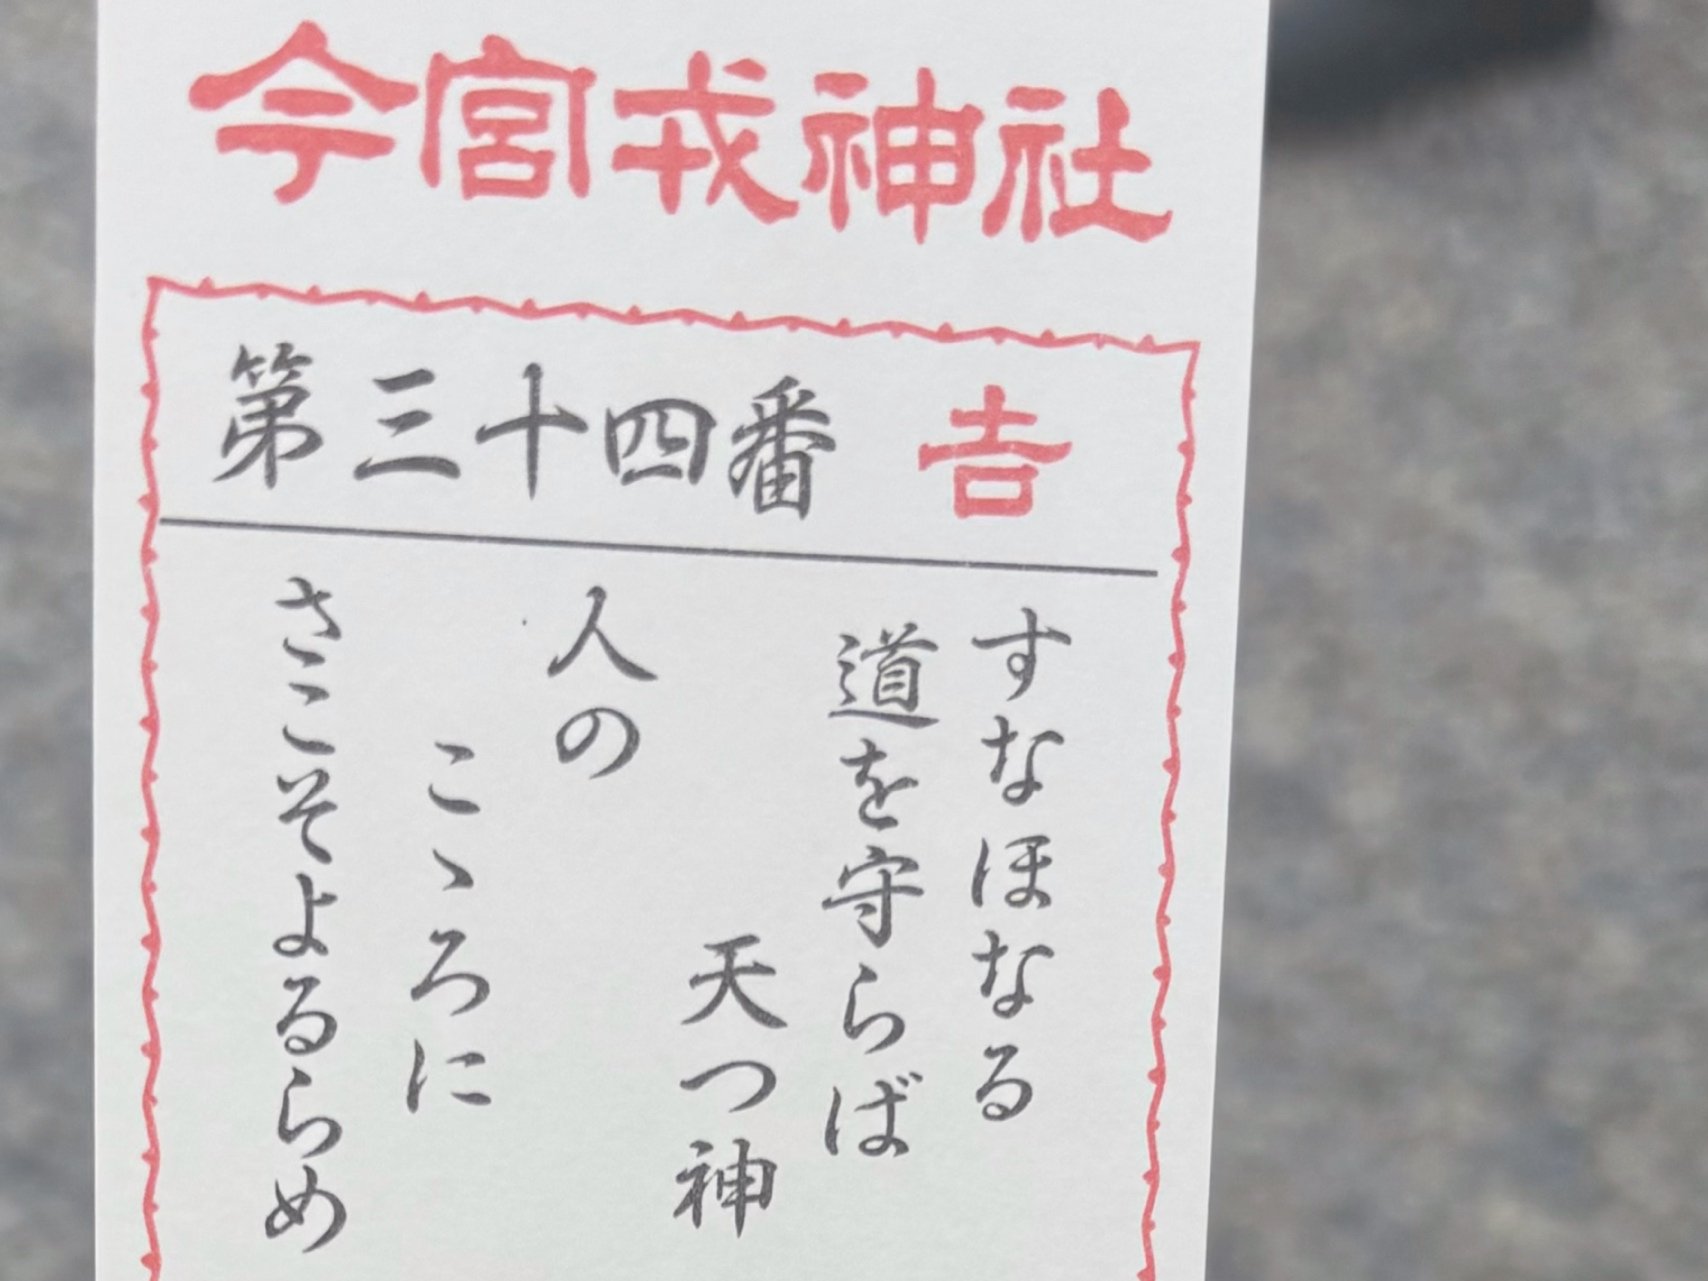 今宮戎神社
第三十四番 吉
すなほなる
道を守らば
天つ神
人の
こゝろに
さこそよるらめ